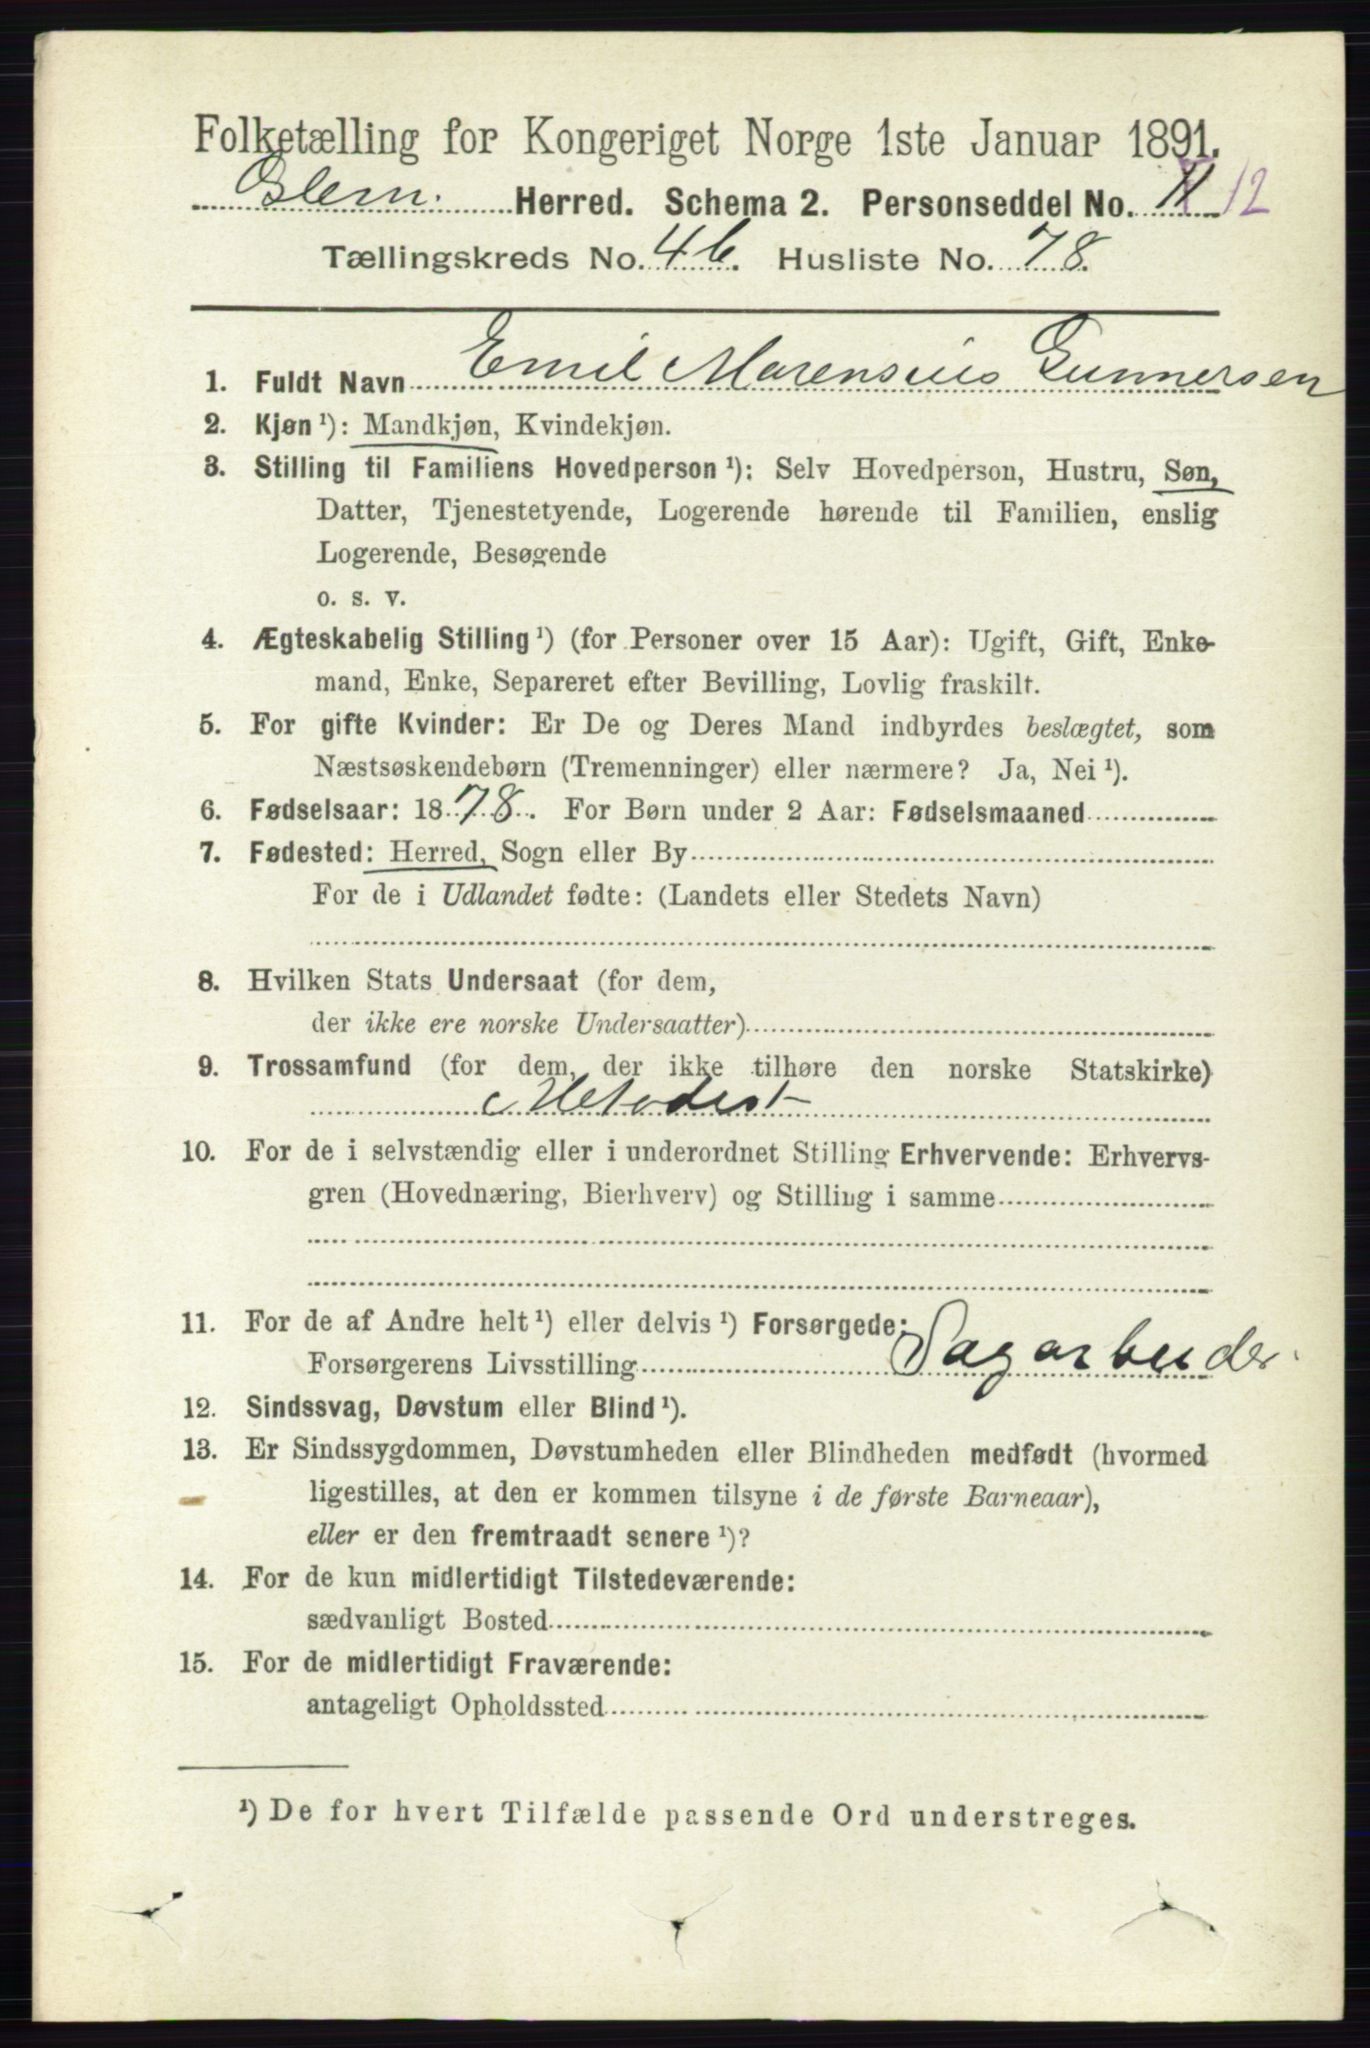 Folketælling for Kongeriget Norge 1ste Januar 1891.
Glem. Herred. Schema 2. Personseddel No. 11 12
Tællingskreds No. 4 b. Husliste No. 78.
1. Fuldt Navn Emil Marensius Gunnersen
2. Kjøn¹): Mandkjøn, Kvindekjøn.
3. Stilling til Familiens Hovedperson¹): Selv Hovedperson, Hustru, Søn,
Datter, Tjenestetyende, Logerende hørende til Familien, enslig
Logerende, Besøgende
o. s. v.
4. Ægteskabelig Stilling¹) (for Personer over 15 Aar): Ugift, Gift, Enke-
mand, Enke, Separeret efter Bevilling, Lovlig fraskilt.
5. For gifte Kvinder: Er De og Deres Mand indbyrdes beslægtet, som
Næstsøskendebørn (Tremenninger) eller nærmere? Ja, Nei¹).
6. Fødselsaar: 1878. For Børn under 2 Aar: Fødselsmaaned
7. Fødested: Herred, Sogn eller By
For de i Udlandet fødte: (Landets eller Stedets Navn)
8. Hvilken Stats Undersaat (for dem,
der ikke ere norske Undersaatter)
9. Trossamfund (for dem, der ikke tilhøre den norske Statskirke)
Metodist
10. For de i selvstændig eller i underordnet Stilling Erhvervende: Erhvervs-
gren (Hovednæring, Bierhverv) og Stilling i samme
11. For de af Andre helt¹) eller delvis¹) Forsørgede:
Forsørgerens Livsstilling Sagarbeider.
12. Sindssvag, Døvstum eller Blind¹).
13. Er Sindssygdommen, Døvstumheden eller Blindheden medfødt (hvormed
ligestilles, at den er kommen tilsyne i de første Barneaar),
eller er den fremtraadt senere¹)?
14. For de kun midlertidigt Tilstedeværende:
sædvanligt Bosted
15. For de midlertidigt Fraværende:
antageligt Opholdssted
¹) De for hvert Tilfælde passende Ord understreges.